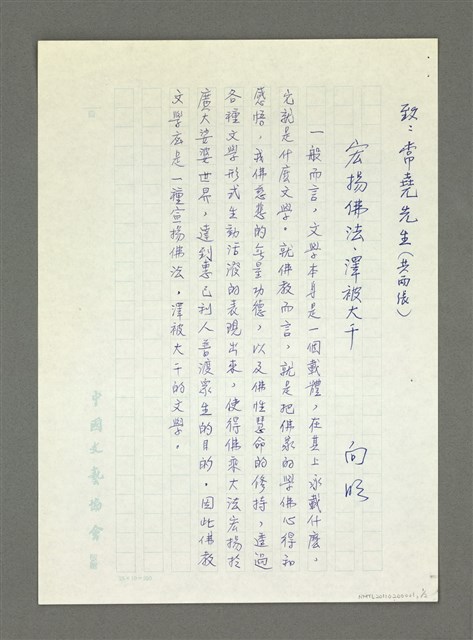 致：常堯先生（共兩張）
宏揚佛法·澤被大千　　向明
一般而言，文學本身是一個載體，在其上承載什麼，
它就是什麼文學。就佛教而言，就是把佛家的學佛心得和
感悟，我佛慈悲的無量功德，以及佛性慧命的修持，透過
各種文學形式生動活潑的表現出來，使得佛乘大法宏揚於
廣大娑婆世界，達到惠己利人普渡眾生的目的。因此佛教
文學應是一種宣揚佛法，澤被大千的文學。
中國文藝協會